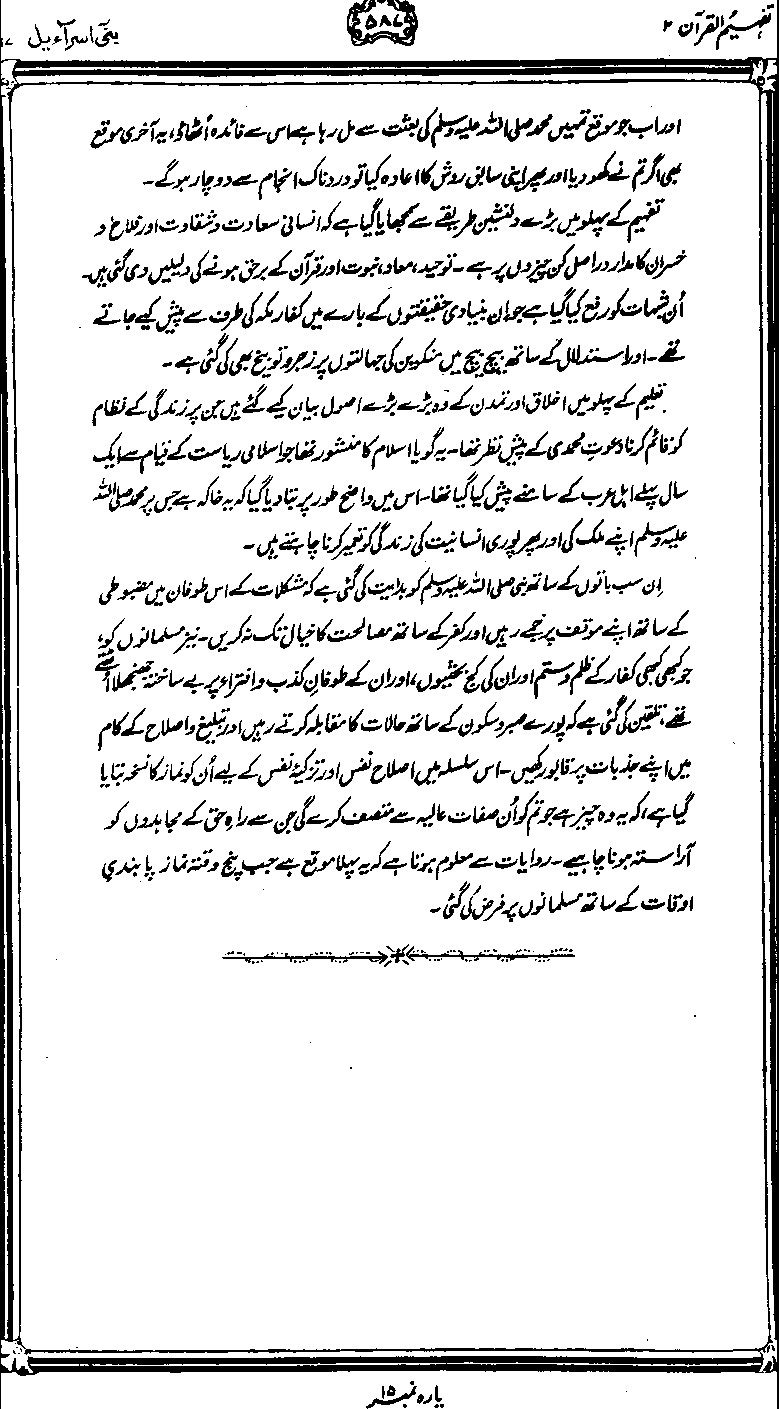 تفہیم القرآن ۲
۵۸۷
بنی اسرآءیل
اور اب جو موقع تمہیں محمد صلی اللہ علیہ وسلم کی بعثت سے مل رہا ہے اس سے فائدہ اُٹھاؤ، یہ آخری موقع
بھی اگر تم نے کھو دیا اور پھر اپنی سابق روش کا اعادہ کیا تو دردناک انجام سے دوچار ہوگے۔
تفہیم کے پہلو میں بڑے دلنشین طریقے سے سمجھایا گیا ہے کہ انسانی سعادت و شقاوت اور فلاح و
خسران کا مدار دراصل کن چیزوں پر ہے۔ توحید، معاد، نبوت اور قرآن کے برحق ہونے کی دلیلیں دی گئی ہیں۔
اُن شبہات کو رفع کیا گیا ہے جو ان بنیادی حقیقتوں کے بارے میں کفار مکہ کی طرف سے پیش کیے جاتے
تھے۔ اور استدلال کے ساتھ بیچ بیچ میں منکرین کی جہالتوں پر زجر و توبیخ بھی کی گئی ہے۔
تعلیم کے پہلو میں اخلاق اور تمدن کے وہ بڑے بڑے اصول بیان کیے گئے ہیں جن پر زندگی کے نظام
کو قائم کرنا دعوتِ محمدی کے پیش نظر تھا۔ یہ گویا اسلام کا منشور تھا جو اسلامی ریاست کے قیام سے ایک
سال پہلے اہل عرب کے سامنے پیش کیا گیا تھا۔ اس میں واضح طور پر بتا دیا گیا کہ یہ خاکہ ہے جس پر محمد صلی اللہ
علیہ وسلم اپنے ملک کی اور پھر پوری انسانیت کی زندگی کو تعمیر کرنا چاہتے ہیں۔
اِن سب باتوں کے ساتھ نبی صلی اللہ علیہ وسلم کو ہدایت کی گئی ہے کہ مشکلات کے اس طوفان میں مضبوطی
کے ساتھ اپنے موقف پر جمے رہیں اور کفر کے ساتھ مصالحت کا خیال تک نہ کریں۔ نیز مسلمانوں کو،
جو کبھی کبھی کفار کے ظلم و ستم اور ان کی کج بحثیوں، اور ان کے طوفانِ کذب و افتراء پر بے ساختہ جھنجھلا اُٹھتے
تھے، تلقین کی گئی ہے کہ پورے صبر و سکون کے ساتھ حالات کا مقابلہ کرتے رہیں اور تبلیغ و اصلاح کے کام
میں اپنے جذبات پر قابو رکھیں۔ اس سلسلہ میں اصلاح نفس اور تزکیۂ نفس کے لیے اُن کو نماز کا نسخہ بتایا
گیا ہے، کہ یہ وہ چیز ہے جو تم کو اُن صفات عالیہ سے متصف کرے گی جن سے راہِ حق کے مجاہدوں کو
آراستہ ہونا چاہیے۔ روایات سے معلوم ہوتا ہے کہ یہ پہلا موقع ہے جب پنج وقتہ نماز پابندیِ
اوقات کے ساتھ مسلمانوں پر فرض کی گئی۔
پارہ نمبر ۱۵